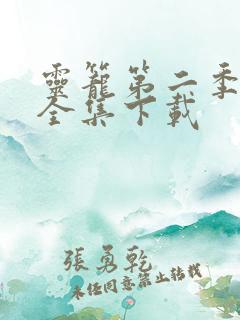 靈籠第二季
全集下載
張勇乾
未經同意禁止轉載